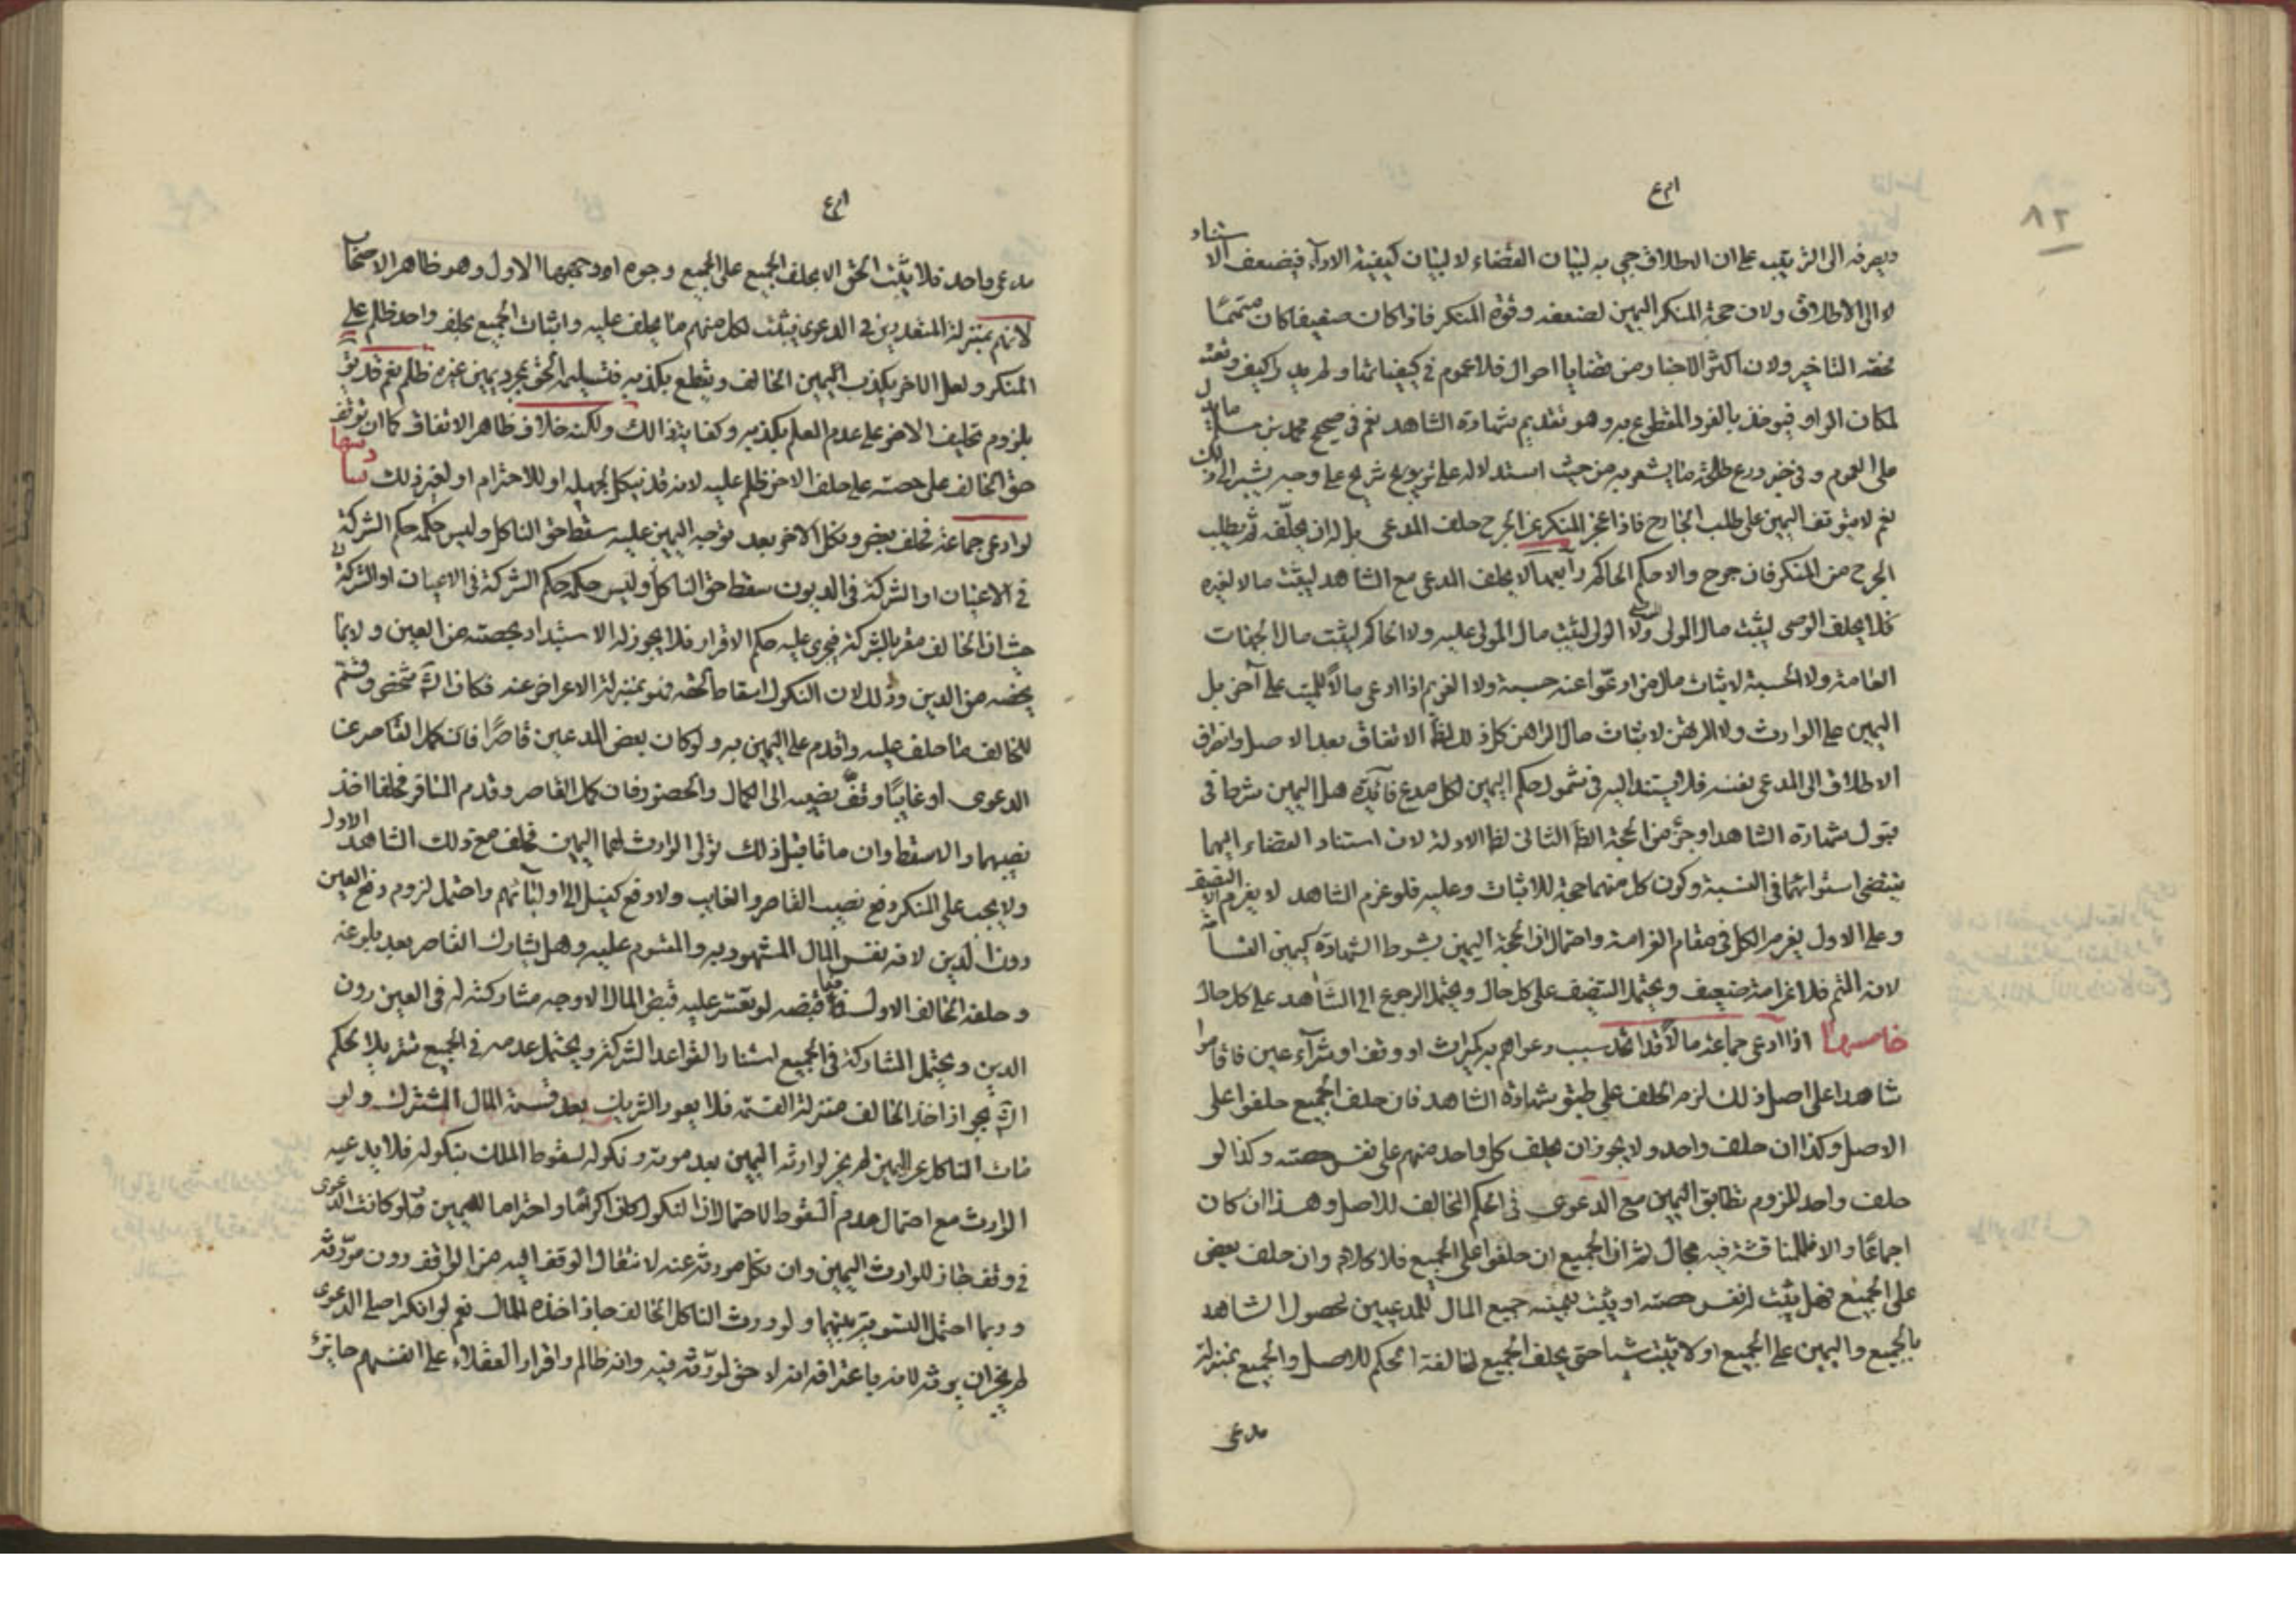 ٨٢
ويصرفه الى الترتيب على ان الاطلاق جي به لبيان القضاء لا لبيان كيفية الاداء فيضعف الاستناد
الى الاطلاق ولان حجة المنكر اليمين لضعفه وقوة المنكر فاذا كان ضعيفا كان متمما
فحقه التاخير ولان اكثر الاخبار من قضايا احوال فلا عموم في كيفياتها ولم يدر كيف وقعت
لمكان الواو فيوخذ بالفرد المقطوع به وهو تقديم شهادة الشاهد نعم في صحيح محمد بن مسلم ما يدل
على العموم وفي خبر درع طلحة ما يشعر به من حيث استدلاله على توبيخ شريح على وجه يشير الى ذلك
نعم لا يتوقف اليمين على طلب الجارح فاذا عجز المنكر عن الجرح حلف المدعى بل له ان يحلفه ثم يطلب
الجرح من المنكر فان جرح والا حكم الحاكم رابعها لا يحلف المدعى مع الشاهد ليثبت مالا لغيره
فلا يحلف الوصى ليثبت مال المولى ولا الولى ليثبت مال المولى عليه ولا الحاكم ليثبت مال الجهات
العامة ولا الحسبة لاثبات مال من ادعوا عنه حسبة ولا الغريم اذا ادعى مالا للميت على آخر بل
اليمين على الوارث ولا المرتهن لاثبات مال الراهن كل ذلك لظاهر الاتفاق بعد الاصل وانصراف
الاطلاق الى المدعى نفسه فلا يستند اليه في شمول حكم اليمين لكل مدع فائدة هل اليمين شرط في
قبول شهادة الشاهد او جزء من الحجة الظاهر الثانى لظاهر الادلة لان استناد القضاء اليهما
يقتضى استوائهما في النسبة وكون كل منهما حجة للاثبات وعليه فلو غرم الشاهد لا يغرم الا النصف
وعلى الاول يغرم الكل في مقام الغرامة واحتمال ان الحجة اليمين بشرط الشهادة كيمين القسامة
لانه المتم فلا غرامة ضعيف ويحتمل التنصيف على كل حال ويحتمل الرجوع الى الشاهد على كل حال
خامسها اذا ادعى جماعة مالا قد اتحد سبب دعواهم به كميراث او وقف او شراء عين فاقاموا
شاهدا على اصل ذلك لزم الحلف على طبق شهادة الشاهد فان حلف الجميع حلفوا على
الاصل وكذا ان حلف واحد ولا يجوز ان يحلف كل واحد منهم على نفس حصته وكذا لو
حلف واحد للزوم تطابق اليمين مع الدعوى في الحكم المخالف للاصل وهذا ان كان
اجماعا والا فللمناقشة فيه مجال ثم ان الجميع ان حلفوا على الجميع فلا كلام وان حلف بعض
على الجميع فهل يثبت له نفس حصته او يثبت بيمينه جميع المال للمدعيين لحصول الشاهد
بالجميع واليمين على الجميع او لا يثبت شيا حتى يحلف الجميع لمخالفة الحكم للاصل والجميع بمنزلة
مدعى
مدعى واحد فلا يثبت الحق الا بحلف الجميع على الجميع وجوه اوجهها الاول وهو ظاهر الاصحاب
لانهم بمنزلة المتعددين في الدعوى فيثبت لكل منهم ما يحلف عليه واثبات الجميع بحلف واحد ظلم على
المنكر ولعل الاخر يكذب اليمين الحالف ويقطع بكذبه فتسليمه الحق بمجرد يمين غيره ظلم نعم قد يق
بلزوم تحليف الاخر على عدم العلم بكذبه وكفايته ذلك ولكنه خلاف ظاهر الاتفاق كما ان توقف
حق الحالف على حصته على حلف الاخر ظلم عليه لانه قد ينكل لجهله او للاحترام او لغير ذلك سادسها
لو ادعى جماعة فحلف بعض ونكل الاخر بعد توجه اليمين عليه سقط حق الناكل وليس حكمه حكم الشركة
في الاعيان او الشركة في الديون سقط حق الناكل وليس حكمه حكم الشركة في الاعيان او الشركة
حيث ان الحالف مقر بالشركة فيجرى عليه حكم الاقرار فلا يجوز له الاستبداد بحصته من العين ولا بما
يخصه من الدين وذلك لان النكول اسقاط لحقه فهو بمنزلة الاعراض عنه فكان الثمة تشخص وقسم
للحالف ما حلف عليه واقدم على اليمين به ولو كان بعض المدعين قاصرا فان كمل القاصر عن
الدعوى او غايبا وقف نصيبه الى الكمال والحضور فان كمل القاصر وقدم المسافر فحلفا اخذ
نصيبهما والا سقط وان ماتا قبل ذلك تولى الوارث لهما اليمين فحلف مع ذلك الشاهد الاول
ولا يجب على المنكر دفع نصيب القاصر والغايب ولا دفع كفيل الى اوليائهم واحتمل لزوم دفع العين
دون الدين لانه نفس المال المشهود به والمقسوم عليه وهل يشارك القاصر بعد بلوغه
وحلفه الحالف الاول فيما قبضه لو تعسر عليه قبض المال الاوجه مشاركته له في العين دون
الدين ويحتمل المشاركة في الجميع استنادا لقواعد الشركة ويحتمل عدمه في الجميع تنزيلا لحكم
بجواز اخذ الحالف منزلة القسمة فلا يعود الشريك بعد قسمة المال المشترك ولو
مات الناكل عن اليمين لم يجز لوارثه اليمين بعد موته ونكوله لسقوط الملك بنكوله فلا يدعيه
الوارث مع احتمال عدم السقوط لاحتمال ان النكول كان اكراما واحتراما لليمين ولو كانت الدعوى
في وقف جاز للوارث اليمين وان نكل مورثه عنه لانتقال الوقف اليه من الواقف دون مورثه
وربما احتمل التسوية بينهما ولو ورث الناكل الحالف جاز اخذه المال نعم لو انكر اصل الدعوى
لم يجز ان يرثه لانه باعترافه انه لا حق لمورثه فيه وانه ظالم واقرار العقلاء على انفسهم جايز